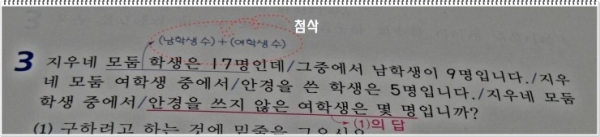 첨삭
(남학생 수) + (여학생 수)
3 지우네 모둠 학생은 17명인데/그중에서 남학생이 9명입니다./지우
네 모둠 여학생 중에서/안경을 쓴 학생은 5명입니다./지우네 모둠
학생 중에서/안경을 쓰지 않은 여학생은 몇 명입니까?
(1)의 답
(1) 구하려고 하는 것에 밑줄을 그으시오.